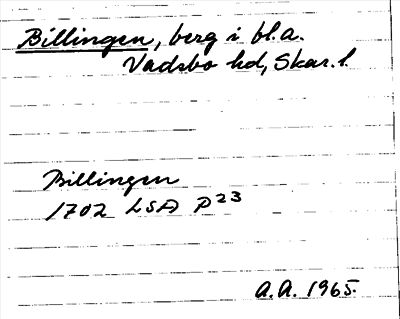 Billingen, berg i bl.a.
Vadsbo hd, Skar. l.
Billingen
1702 LSA P23
A.A. 1965.